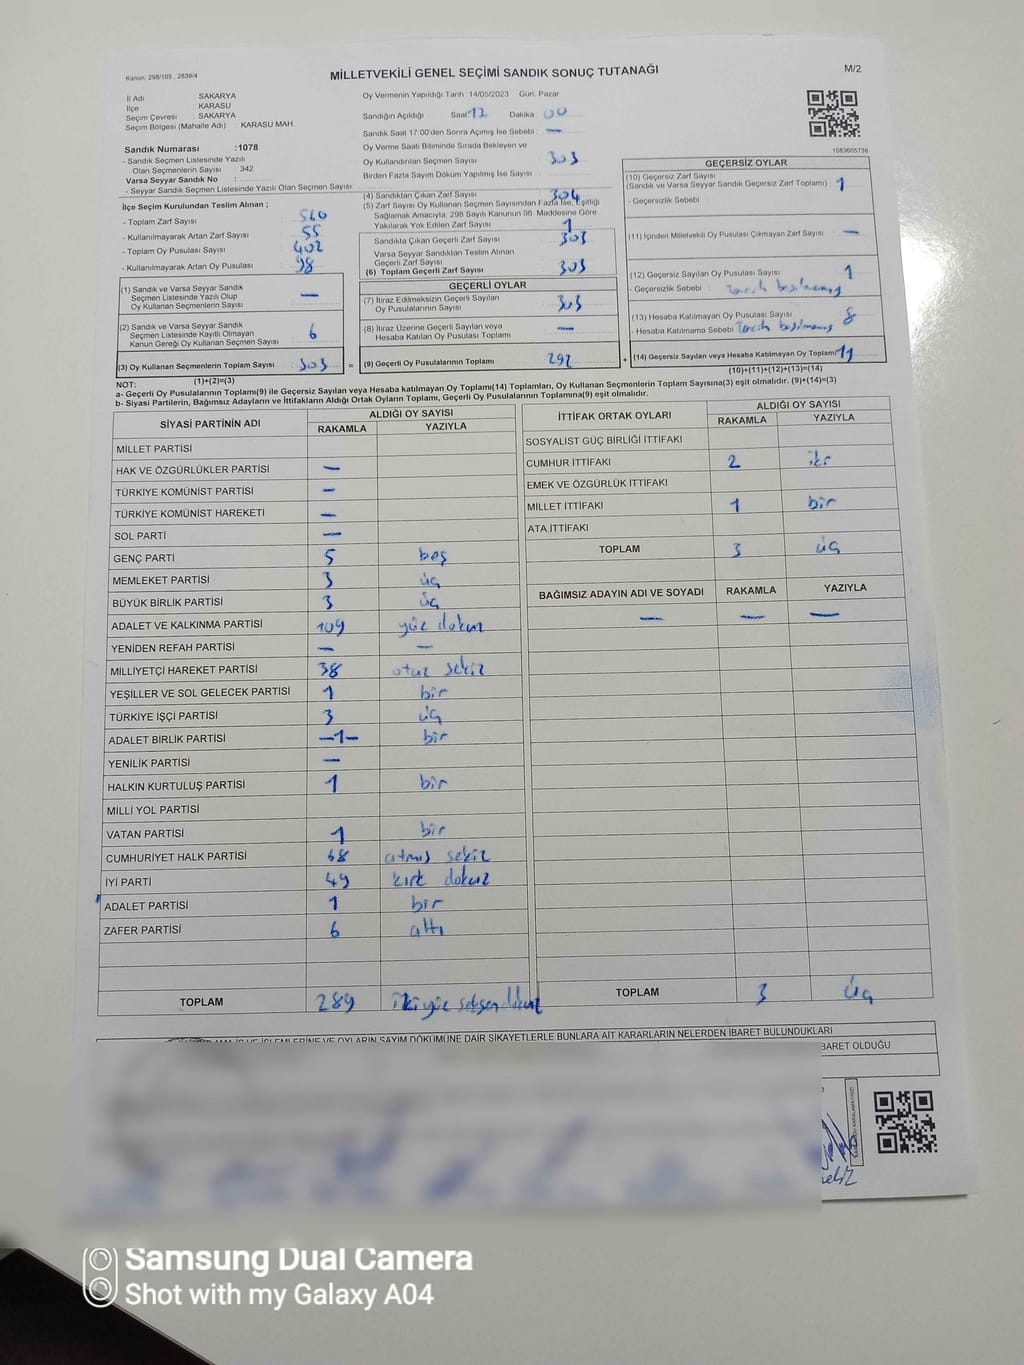 Kanun: 298/105 , 2839/4
MİLLETVEKİLİ GENEL SEÇİMİ SANDIK SONUÇ TUTANAĞI
M/2
İl Adı : SAKARYA
İlçe : KARASU
Seçim Çevresi : SAKARYA
Seçim Bölgesi (Mahalle Adı) : KARASU MAH.
Sandık Numarası :1078
- Sandık Seçmen Listesinde Yazılı
Olan Seçmenlerin Sayısı : 342
Varsa Seyyar Sandık No :
- Seyyar Sandık Seçmen Listesinde Yazılı Olan Seçmen Sayısı
İlçe Seçim Kurulundan Teslim Alınan ;
- Toplam Zarf Sayısı : 540
- Kullanılmayarak Artan Zarf Sayısı : 55
- Toplam Oy Pusulası Sayısı : 402
- Kullanılmayarak Artan Oy Pusulası : 98
(1) Sandık ve Varsa Seyyar Sandık
Seçmen Listesinde Yazılı Olup
Oy Kullanan Seçmenlerin Sayısı —
(2) Sandık ve Varsa Seyyar Sandık
Seçmen Listesinde Kayıtlı Olmayan
Kanun Gereği Oy Kullanan Seçmen Sayısı 6
(3) Oy Kullanan Seçmenlerin Toplam Sayısı 303 =
(1)+(2)=(3)
Oy Vermenin Yapıldığı Tarih :14/05/2023 Gün: Pazar
Sandığın Açıldığı Saat 17 Dakika 00
Sandık Saat 17:00'den Sonra Açımış İse Sebebi : —
Oy Verme Saati Bitiminde Sırada Bekleyen ve
Oy Kullandırılan Seçmen Sayısı : 303
Birden Fazla Sayım Döküm Yapılmış İse Sayısı :
(4) Sandıktan Çıkan Zarf Sayısı 304
(5) Zarf Sayısı Oy Kullanan Seçmen Sayısından Fazla İse, Eşitliği
Sağlamak Amacıyla; 298 Sayılı Kanunun 98. Maddesine Göre
Yakılarak Yok Edilen Zarf Sayısı 1
Sandıkta Çıkan Geçerli Zarf Sayısı 303
Varsa Seyyar Sandıktan Teslim Alınan
Geçerli Zarf Sayısı
(6) Toplam Geçerli Zarf Sayısı 303
GEÇERLİ OYLAR
(7) İtiraz Edilmeksizin Geçerli Sayılan
Oy Pusulalarının Sayısı 303
(8) İtiraz Üzerine Geçerli Sayılan veya
Hesaba Katılan Oy Pusulası Toplamı —
(9) Geçerli Oy Pusulalarının Toplamı 292 +
1083605738
GEÇERSİZ OYLAR
(10) Geçersiz Zarf Sayısı
(Sandık ve Varsa Seyyar Sandık Geçersiz Zarf Toplamı) 1
- Geçersizlik Sebebi :
(11) İçinden Milletvekili Oy Pusulası Çıkmayan Zarf Sayısı —
(12) Geçersiz Sayılan Oy Pusulası Sayısı 1
- Geçersizlik Sebebi : Tercih basılmamış
(13) Hesaba Katılmayan Oy Pusulası Sayısı 8
- Hesaba Katılmama Sebebi Tercih basılmamış
(14) Geçersiz Sayılan veya Hesaba Katılmayan Oy Toplamı 11
(10)+(11)+(12)+(13)=(14)
NOT:
a- Geçerli Oy Pusulalarının Toplamı(9) ile Geçersiz Sayılan veya Hesaba katılmayan Oy Toplamı(14) Toplamları, Oy Kullanan Seçmenlerin Toplam Sayısına(3) eşit olmalıdır. (9)+(14)=(3)
b- Siyasi Partilerin, Bağımsız Adayların ve İttifakların Aldığı Ortak Oyların Toplamı, Geçerli Oy Pusulalarının Toplamına(9) eşit olmalıdır.
SİYASİ PARTİNİN ADI ALDIĞI OY SAYISI
RAKAMLA YAZIYLA
MİLLET PARTİSİ
HAK VE ÖZGÜRLÜKLER PARTİSİ —
TÜRKİYE KOMÜNİST PARTİSİ —
TÜRKİYE KOMÜNİST HAREKETİ —
SOL PARTİ —
GENÇ PARTİ 5 beş
MEMLEKET PARTİSİ 3 üç
BÜYÜK BİRLİK PARTİSİ 3 üç
ADALET VE KALKINMA PARTİSİ 109 yüz dokuz
YENİDEN REFAH PARTİSİ — —
MİLLİYETÇİ HAREKET PARTİSİ 38 otuz sekiz
YEŞİLLER VE SOL GELECEK PARTİSİ 1 bir
TÜRKİYE İŞÇİ PARTİSİ 3 üç
ADALET BİRLİK PARTİSİ —1— bir
YENİLİK PARTİSİ —
HALKIN KURTULUŞ PARTİSİ 1 bir
MİLLİ YOL PARTİSİ
VATAN PARTİSİ 1 bir
CUMHURİYET HALK PARTİSİ 68 atmış sekiz
İYİ PARTİ 49 kırk dokuz
ADALET PARTİSİ 1 bir
ZAFER PARTİSİ 6 altı
TOPLAM 289 ikiyüz seksen dokuz
İTTİFAK ORTAK OYLARI ALDIĞI OY SAYISI
RAKAMLA YAZIYLA
SOSYALİST GÜÇ BİRLİĞİ İTTİFAKI
CUMHUR İTTİFAKI 2 iki
EMEK VE ÖZGÜRLÜK İTTİFAKI
MİLLET İTTİFAKI 1 bir
ATA İTTİFAKI
TOPLAM 3 üç
BAĞIMSIZ ADAYIN ADI VE SOYADI RAKAMLA YAZIYLA
— — —
TOPLAM 3 üç
İŞLEMLERİNE VE OYLARIN SAYIM DÖKÜMÜNE DAİR ŞİKAYETLERLE BUNLARA AİT KARARLARIN NELERDEN İBARET BULUNDUKLARI
BARET OLDUĞU
Samsung Dual Camera
Shot with my Galaxy A04